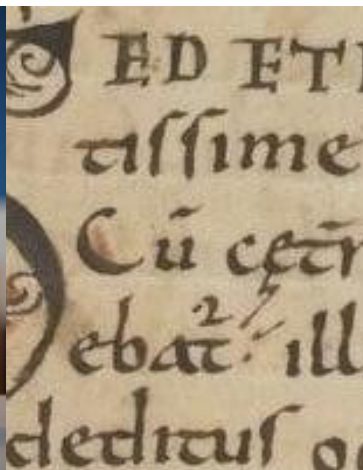 ED ET
tissime
Cū cętr
ebat᷑ ill
deditus